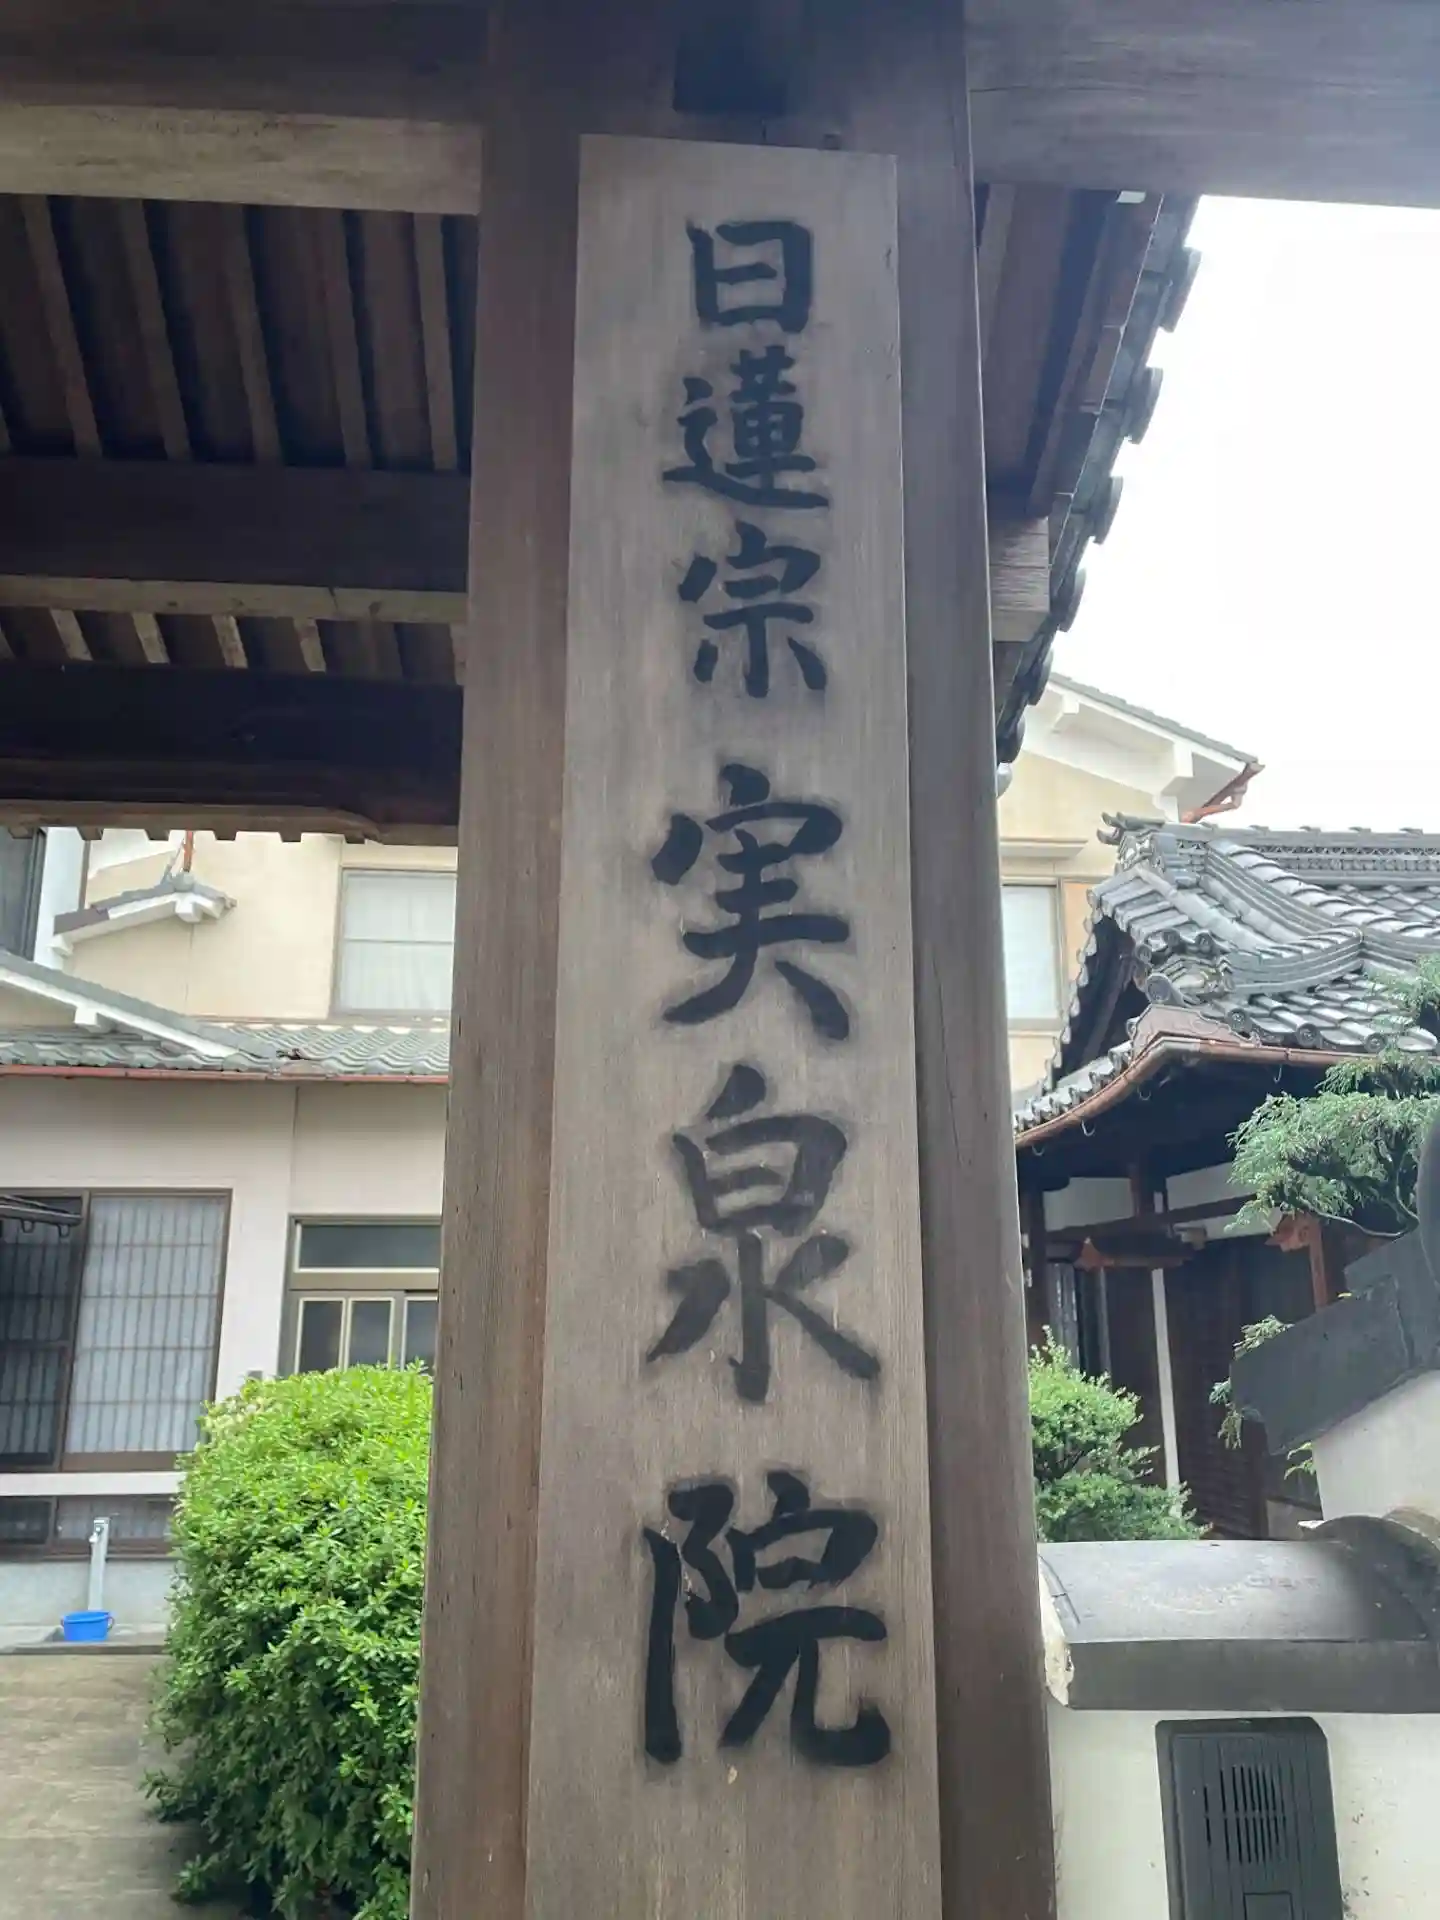 日蓮宗 実泉院